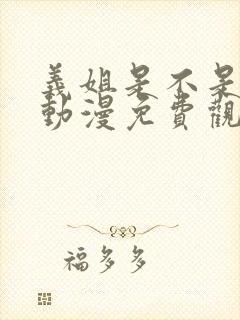 義姐是不是
動漫免費觀
福多多